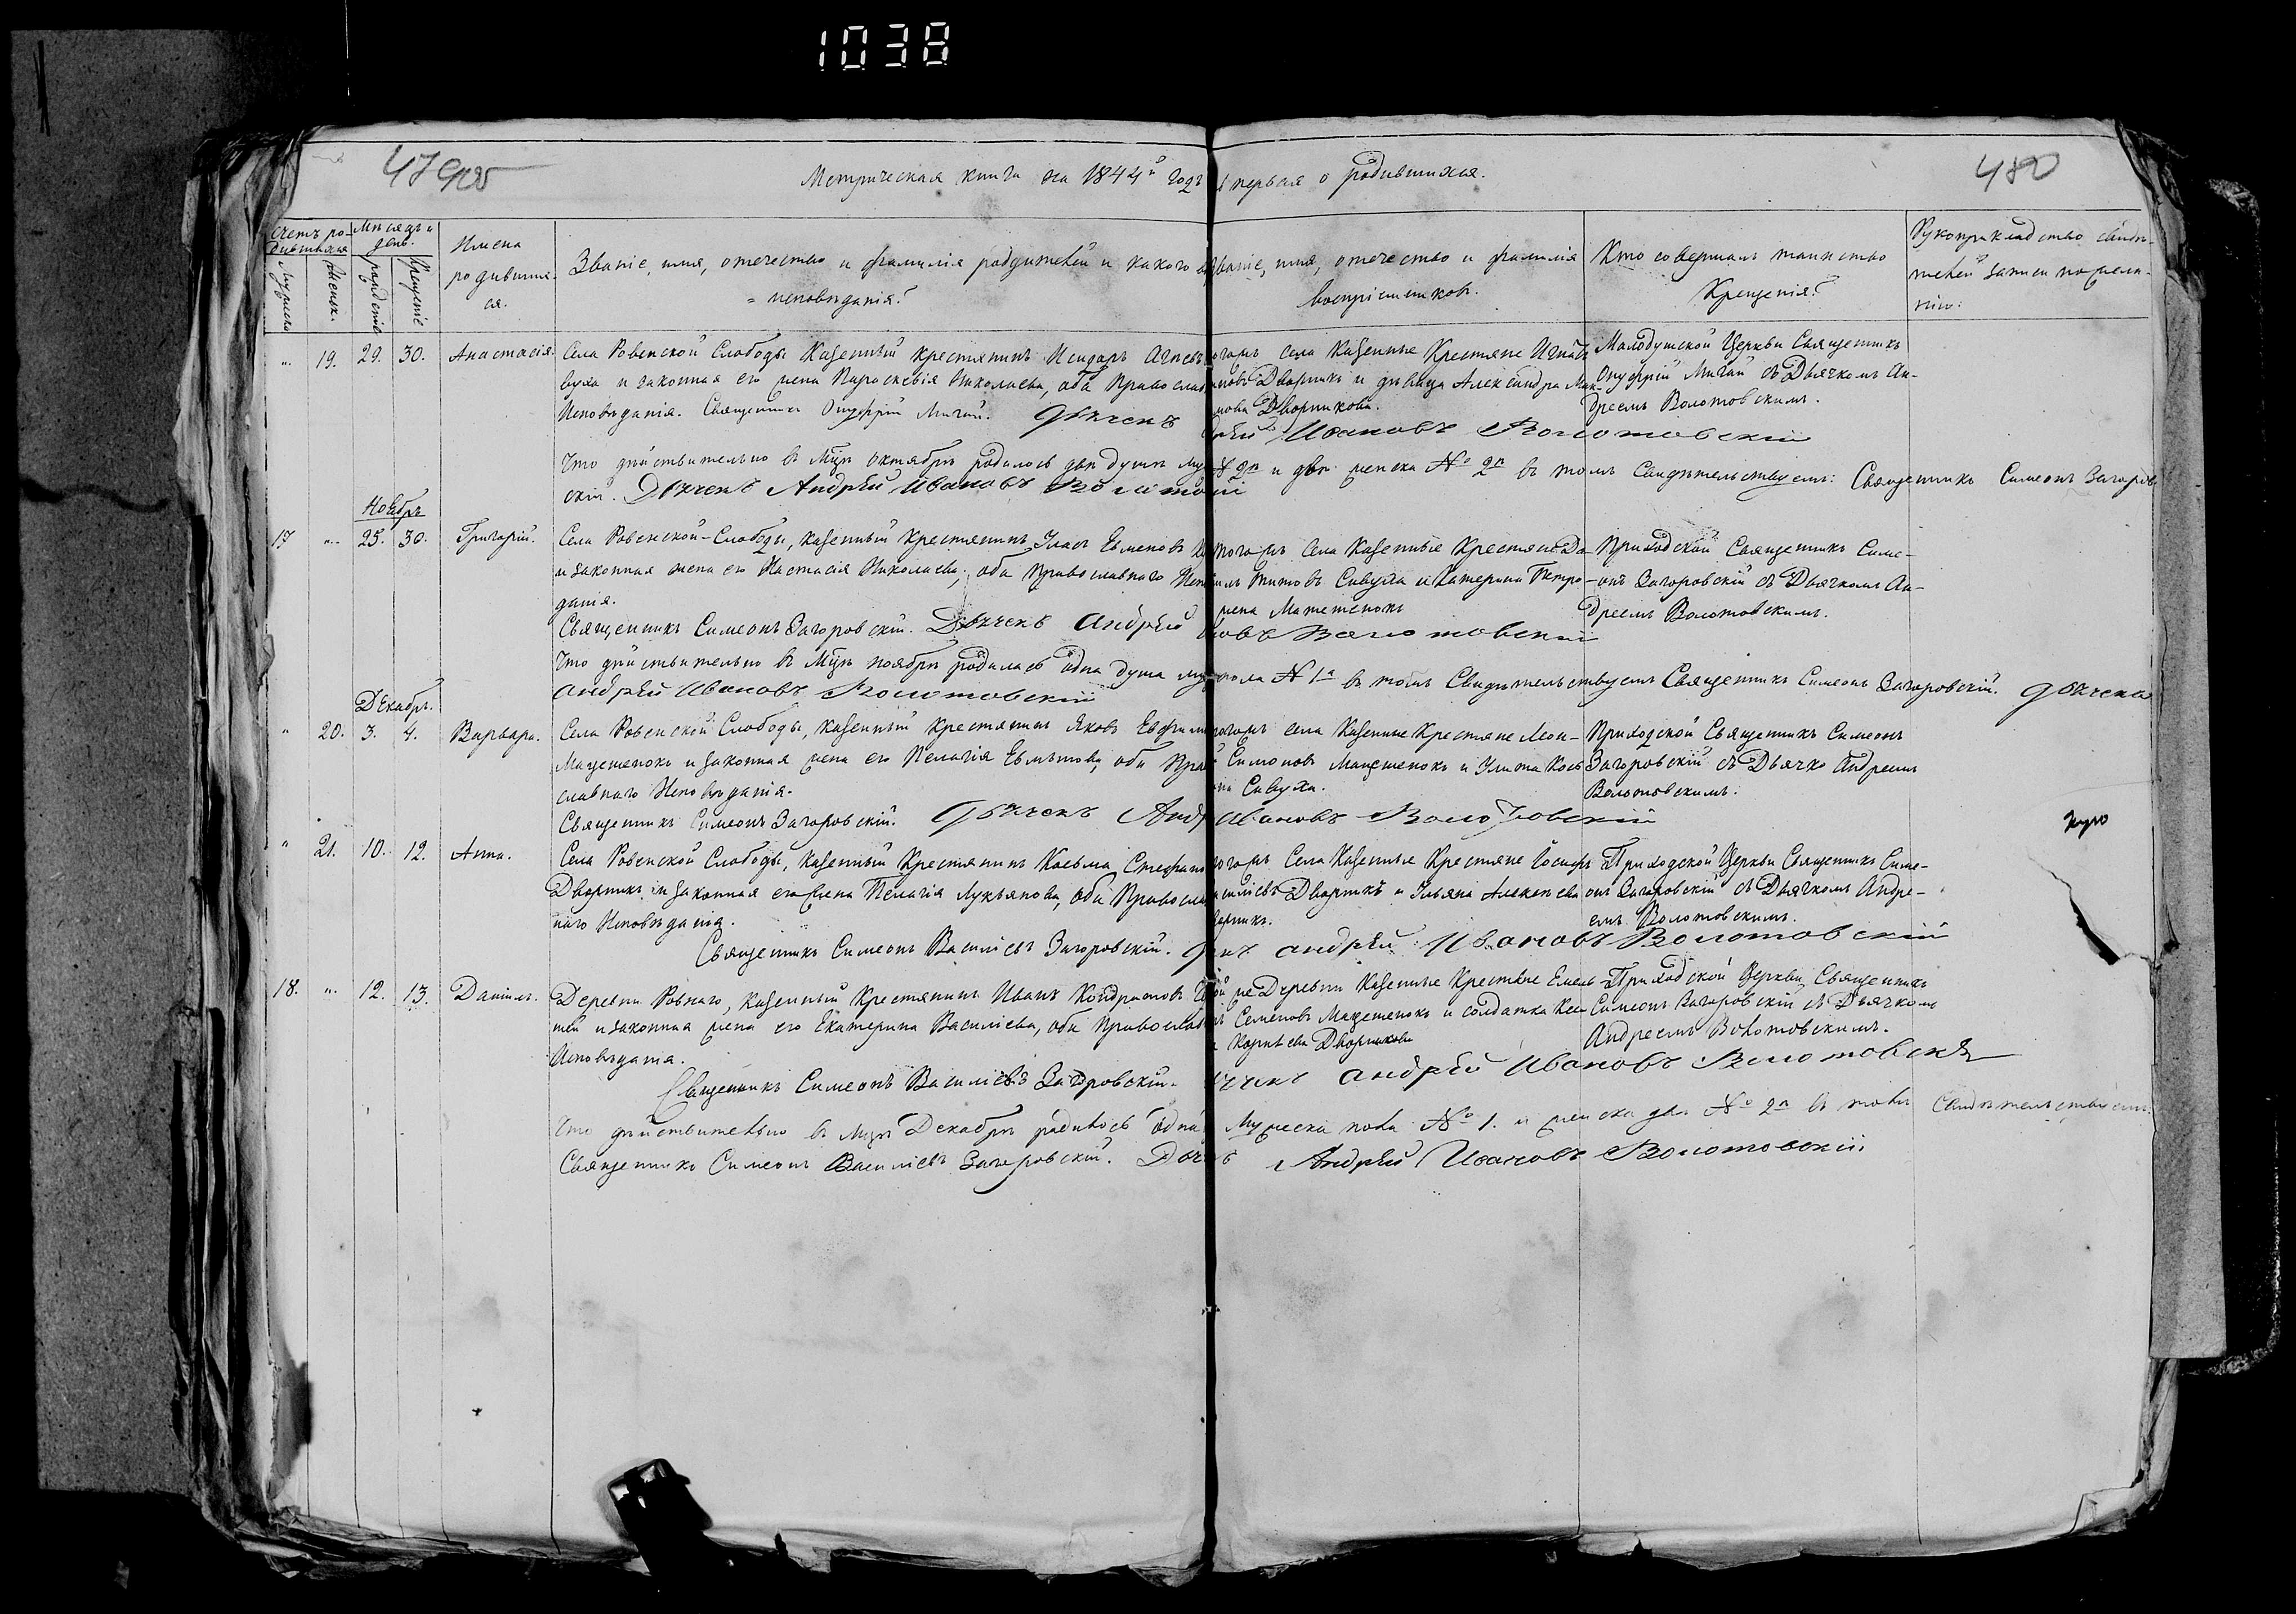 1038
480
Метрическая книга на 1844й годъ первая о родившихся.
Счетъ родившихся
Мужеска
Женск.
Мѣсяцъ и день.
рожденіе
Крещеніе
Имена родившихся.
Званіе, имя, отечество и фамилія родителей и какого
исповѣданія?
Званіе, имя, отечество и фамилія
воспріемниковъ.
Кто совершалъ таинство
Крещенія?
Рукоприкладство свидѣ-
телей записи по жела-
нію:
„ 19. 29. 30. Анастасія.
Села Ровенской Слободы Казенный крестянинъ Исидоръ
и законная его жена Параскевія Николаева, оба Православ
Исповѣданія. Священникъ Онуфрій Мигай. Дьячекъ
села Казенные Крестяне Игнатъ
Дворникъ и дѣвица Александра
Дворникова.
Ивановъ Волотовскій
Молодушской Церкви Священникъ
Онуфрій Мигай съ Дьячкомъ Ан-
дреемъ Волотовскимъ.
Что дѣйствительно въ Мцѣ октябрѣ родилось двѣ душъ № 2й и двѣ женска № 2й въ томъ Свидѣтельствуемъ: Священникъ Симеонъ Загоров
скій. Дьячекъ Андрей Ивановъ
Ноябрь
17 „ 25. 30. Григорій.
Села Ровенской-Слободы, Казенный Крестянинъ Власъ Евменовъ
и законная жена его Настасія Николаева, оба Православнаго Испов
данія.
Священникъ Симеонъ Загоровскій. Дьячекъ Андрей Волотовскій
тогожъ Села Казенные Крестяне Да-
Титовъ Сивуха и Катерина Петро-
жена
Приходской Священникъ Симе-
онъ Загоровскій съ Дьячкомъ Ан-
дреемъ Волотовскимъ.
Что дѣйствительно въ Мцѣ ноябрѣ родилась одна душа пола № 1й въ томъ Свидѣтельствуемъ Священникъ Симеонъ Загоровскій. Дьячекъ
Андрей Ивановъ Волотовскій
Декабрь.
„ 20. 3. 4. Варвара.
Села Ровенской Слободы, Казенный Крестянинъ Яковъ Ефим
Мацешенокъ и законная жена его Пелагія оба Прав
славнаго Исповѣданія.
Священникъ Симеонъ Загоровскій. Дьячекъ Андр Ивановъ Волотовскій
тогожъ села Казенные Крестяне Леон-
Симоновъ Мацешенокъ и Улита
Сивуха.
Приходской Священникъ Симеонъ
Загоровскій съ Дьячко Андреемъ
Волотовскимъ.
„ 21. 10. 12. Анна.
Села Ровенской Слободы, Казенный Крестянинъ Косьма Стефан
Дворникъ и законная его жена Пелагія Лукьянова, оба Правосла
наго Исповѣданія.
Священникъ Симеонъ Василіевъ Загоровскій. Андрей Ивановъ Волотовскій
тогожъ Села Казенные Крестяне Іосифъ
Дворникъ и Ульяна Алексѣева
Приходской Церкви Священникъ Симе-
онъ Загоровскій съ Дьячкомъ Андре-
емъ Волотовскимъ.
18. „ 12. 13. Даніилъ.
Деревни Ровнаго, Казенный Крестянинъ Иванъ Кондратовъ
и законная жена его Екатерина Василіева, оба Православ
Исповѣданія.
Священникъ Симеонъ Василіевъ Загоровскій. Андрей Ивановъ Волотовскій
же Деревни Казенные Крестяне Емель
Семеновъ Мацешенокъ и солдатка Ксе
Корнѣева Дворникова
Приходской Церкви Священникъ
Симеонъ Загоровскій съ Дьячкомъ
Андреемъ Волотовскимъ.
Что дѣйствительно въ Мцѣ Декабрѣ родилось одна Мужеска пола № 1. и женска два № 2й въ томъ Свидѣтельствуемъ:
Священникъ Симеонъ Василіевъ Загоровскій. Андрей Ивановъ Волотовскій